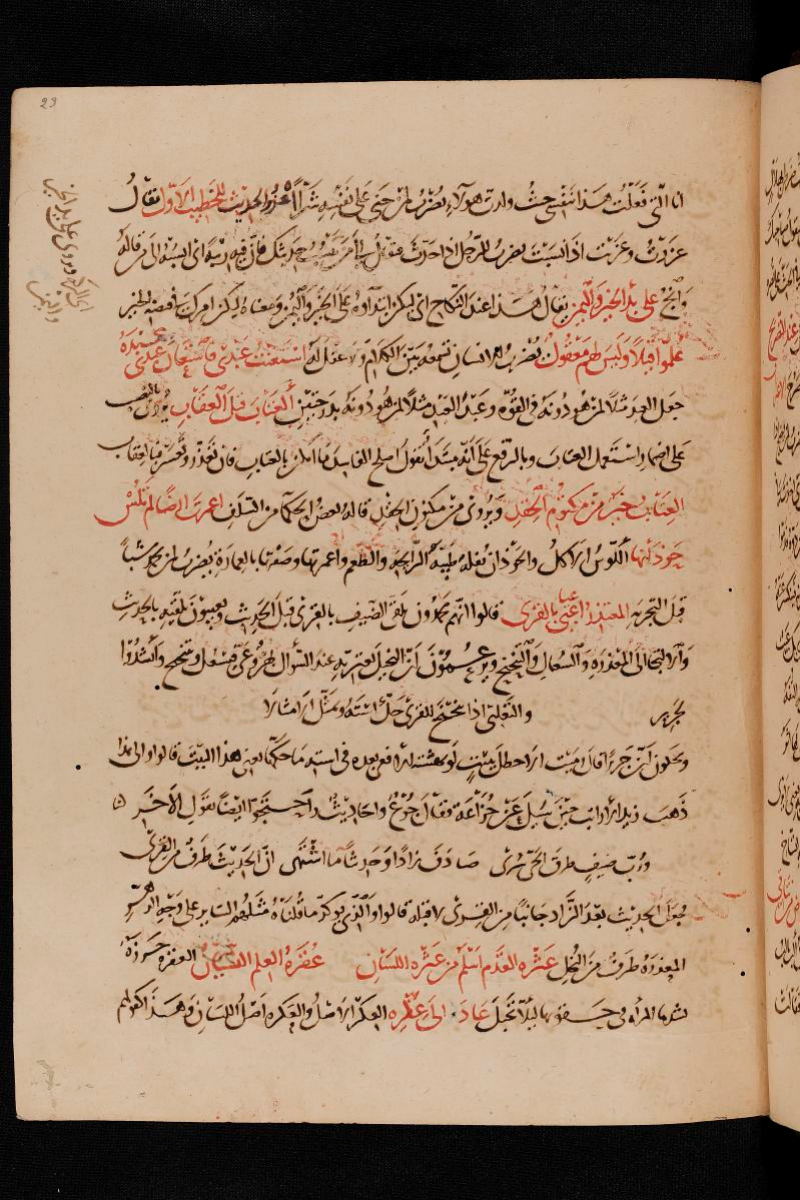 23
انا التي فعلت هذا بنفسي حيث ولدت هولاء يضرب لمن جنى على نفسه شرا اعزز الحديث للخطيب الاول يقال
عزوت وعزيت اذا نسبت يضرب للرجل اذا حدث فيقال الى من ينسب حديثك فان فيه ريبة اى انسبه الى من قاله
وانج على بدء الخير واليمن يقال هذا عند النكاح اى ليكن ابتداوه على الخير واليمن ومعناه ليكن امرك في قبضة الخير
علموا قيلا وليس لهم معقول يضرب للانسان تسمعه بين الكلام ولا عقل له استعنت عبدى فاستعان عبدى عبده
جعل العبد مثلا لمن هو دونه في القوة وعبد العبد مثلا لمن هو دونه بدرجتين العتاب قبل العقاب يروى بالنصب
على اضمار استعمل العتاب وبالرفع على انه مبتدا يقول اصلح الفاسد ما امكن بالعتاب فان تعذر وتعسر فبالعقاب
العتاب خير من مكتوم الحقد ويروى من مكنون الحقد قاله بعض الحكما من السلف اعمرت ارضا لم تلس
حوذانها اللوس الاكل والحوذان بقلة طيبة الرايحة والطعم واعمرتها وصفتها بالعمارة يضرب لمن يحمد شيا
قبل التجربة المعتذر اعيى بالقرى قالوا انهم يحمدون تلقى الضيف بالقرى قبل الحديث ويعيبون تلقيه بالحديث
والالتجا الى المعذرة والسعال والتنحنح ويزعمون ان البخيل يعتريه عند السؤال بهر وعى فيسعل ويتنحنح وانشدوا
لجرير والتغلبى اذا تنحنح للقرى حك استه وتمثل الامثالا
ويحكون ان جريرا قال رميت الاخطل ببيت لو نهشته بعده الافعى في استه ما حكها يعنى هذا البيت قالوا والى هذا
ذهب زيد الارانب حين سيل عن خزاعة فقال جوع واحاديث واحتجوا ايضا بقول الاخر
ورب ضيف طرق الحى سرى صادف زادا وحديثا ما اشتهى ان الحديث طرف من القرى
فجعل الحديث بعد الزاد جانبا من القرى لا قبله قالوا والذى يوكد ما قلناه مثلهم الساير على وجه الدهر
المعذرة طرف من البخل عثرة القدم اسلم من عثرة اللسان عقرة العلم النسيان العقرة خرزة
تشدها المراة في حقوها ليلا تحبل عاد الى عكره العكر الاصل والعكره اصل اللسان وهذا كقولهم